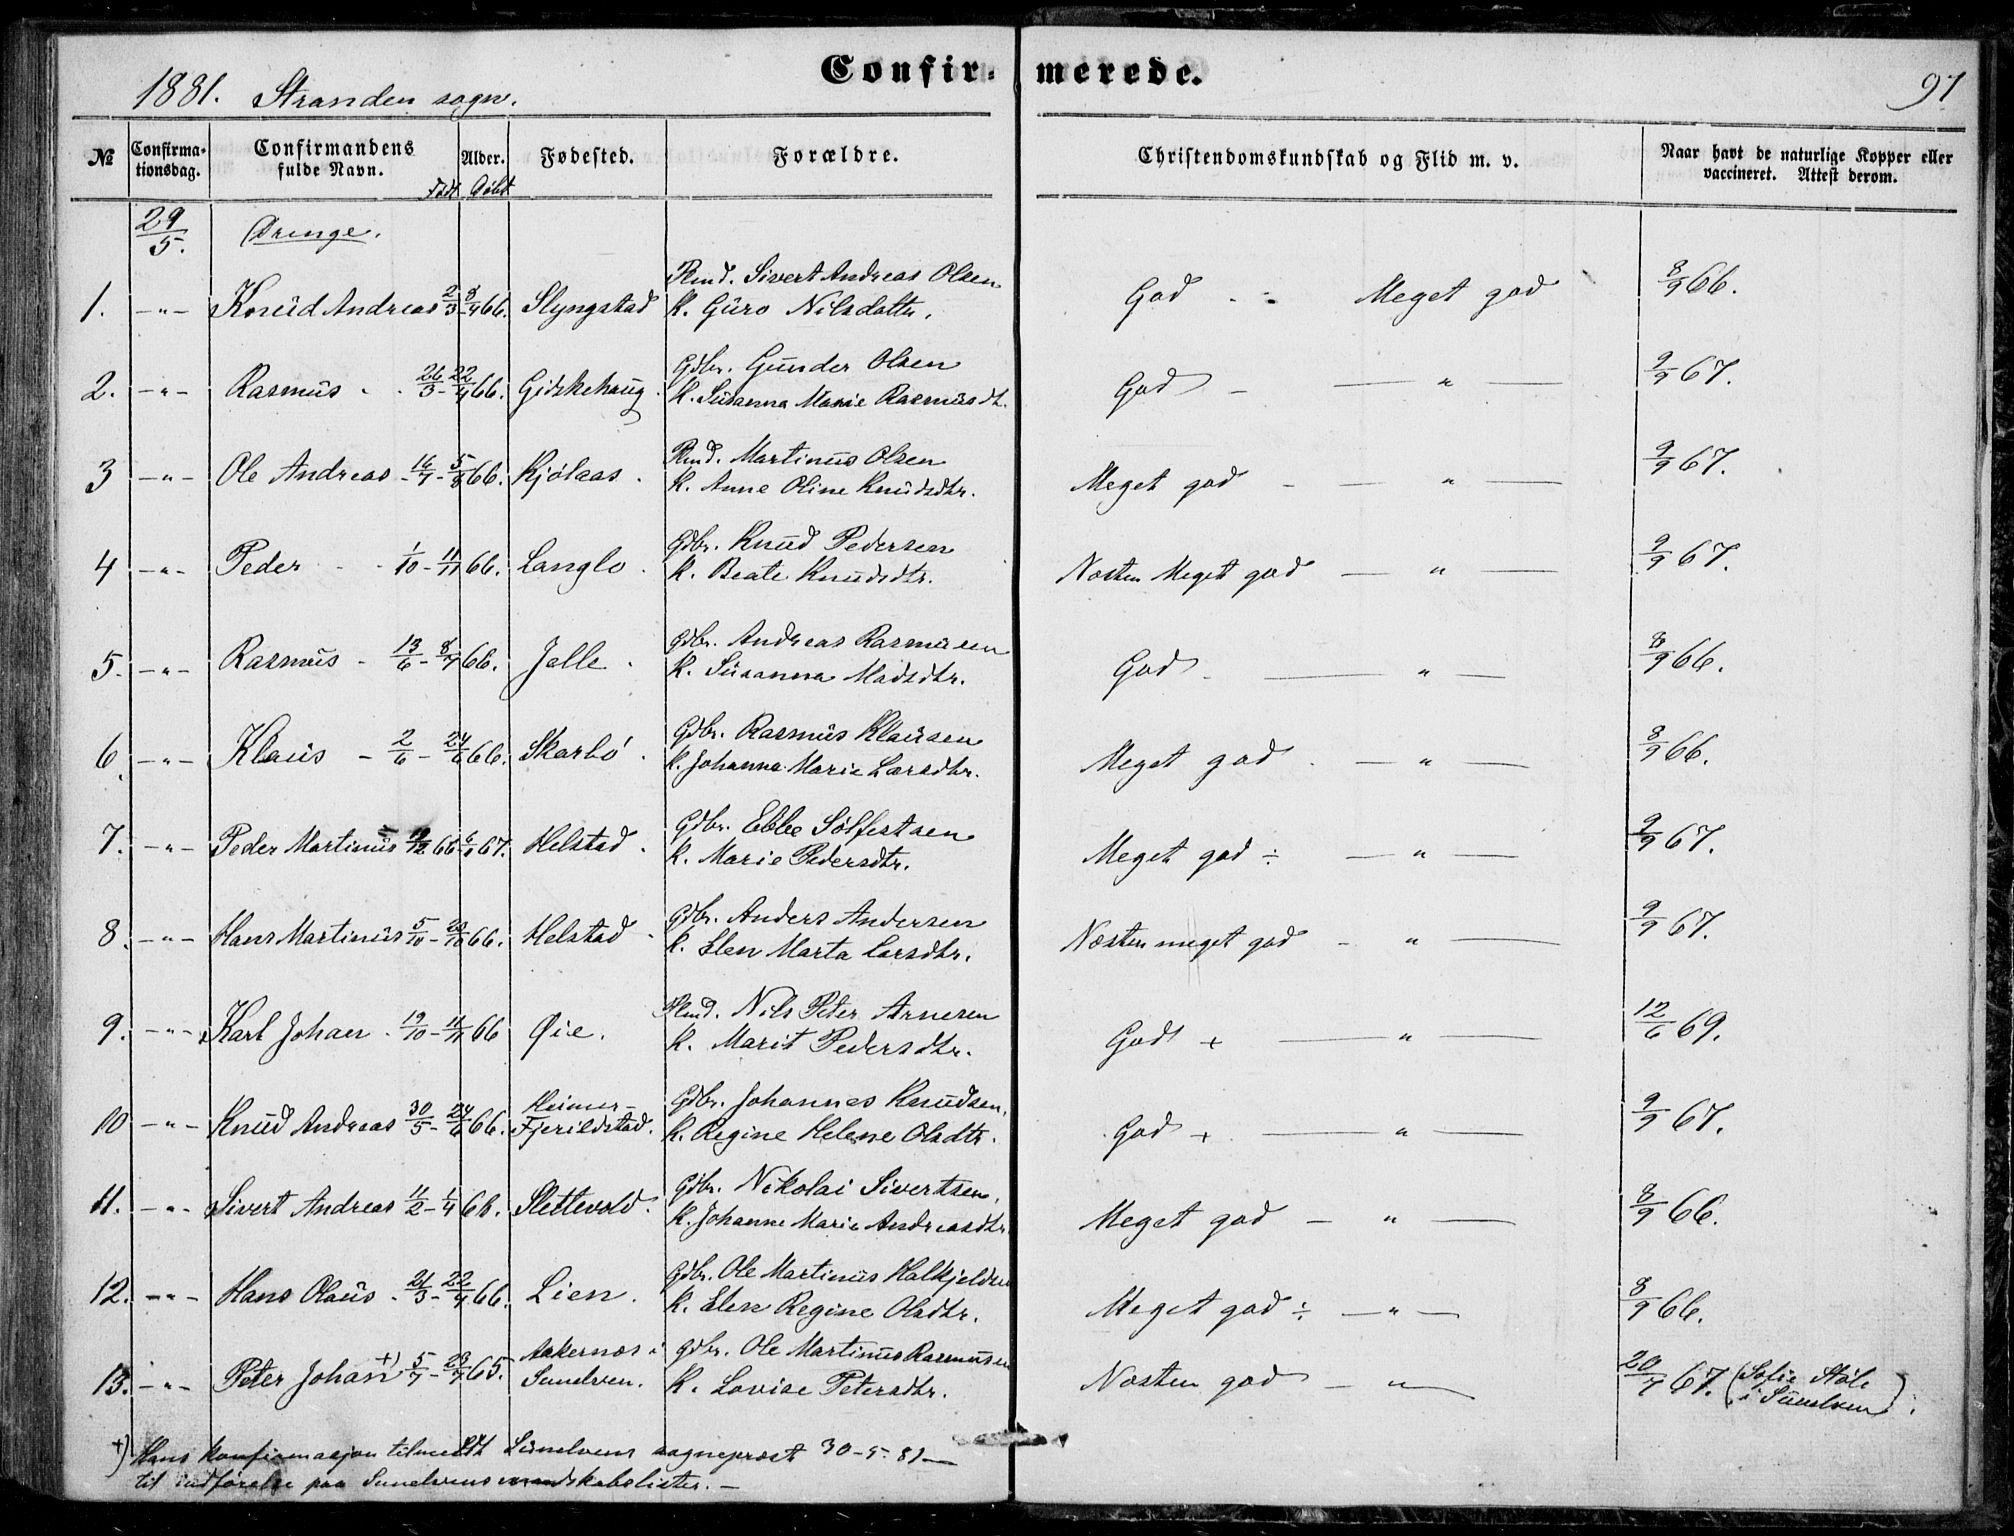 Confirmerede.
1881. Stranden sogn.
91
№ Confirmationsdag. Confirmandens fulde Navn. Alder. Fødested. Forældre. Christendomskundskab og Flid m. v. Naar havt de naturlige Kopper eller vaccineret. Attest derom.
Født Døbt
29/5. Drenge.
Rmd. Sivert Andreas Olsen
1. -"- Knud Andreas 2/3 - 8/4 66. Slyngstad K. Guro Nilsdattr. God - ÷ Meget god 8/9 66.
Gdbr. Gunder Olsen
2. -"- Rasmus - 26/3 - 22/4 66. Gidskehaug. K. Susanna Marie Rasmusdt. God - — " — 9/9 67.
Rmd. Martinus Olsen
3 -"- Ole Andreas - 16/7 - 5/8 66. Kjölaas. K. Anne Oline Knudsdtr. Meget god - — " — 9/9 67.
Gdbr. Knud Pedersen
4 -"- Peder - 1/10 - 11/11 66. Langlo. K. Beate Knudsdtr. Næsten Meget god — " — 9/9 67.
Gdbr. Andreas Rasmusen
5. -"- Rasmus - 13/6 - 8/7 66. Jelle. K. Susanna Madsdtr. God - — " — 8/9 66.
Gdbr. Rasmus Klausen
6. -"- Klaus - 2/6 - 24/6 66. Skarbö. K. Johanne Marie Larsdtr. Meget god - — " — 8/9 66.
Gdbr. Ebbe Sölfestsen
7. -"- Peder Martinus /12 66 - 6/1 67. Helstad. K. Marie Pedersdtr. Meget god ÷ — " — 9/9 67.
Gdbr. Anders Andersen
8. -"- Hans Martinus 5/10 - 28/10 66. Helstad. K. Elen Marta Larsdtr. Næsten meget god - " — 9/9 67.
Hmd. Nils Peter Arnesen
9. -"- Karl Johan - 19/10 - 11/11 66 Øie. K. Marit Pedersdtr. God + — " — 12/6 69.
Heimer- Gdbr. Johannes Knudsen.
10 -"- Knud Andreas 30/5 - 24/6 66. Fjerildstad. K. Regine Helene Olsdtr. God + — " — 9/9 67.
Gdbr. Nikolai Sivertsen.
11. -"- Sivert Andreas 11/2 - 1/4 66. Slettevold. K. Johanne Marie Andreasdtr. Meget god - " — 8/9 66.
Gdbr. Ole Martinus Halkjeldsen
12. -"- Hans Olaus - 21/3 - 22/4 66. Lien. K. Elen Regine Olsdtr. Meget god ÷ — " — 8/9 66.
Aakernæs i Gdbr. Ole Martinus Rasmusen
13. -"- Peter Johan +) 5/7 - 23/7 65. Sunelven. K. Lovise Petersdtr. Næsten god - " — 20/7 67. (Sofie Stöle i Sunelven).
+) Hans konfirmasjon tilmeldt Sunelvens sogneprest 30-5-81 —
til indförelse paa Sunelvens mandskabslister. —